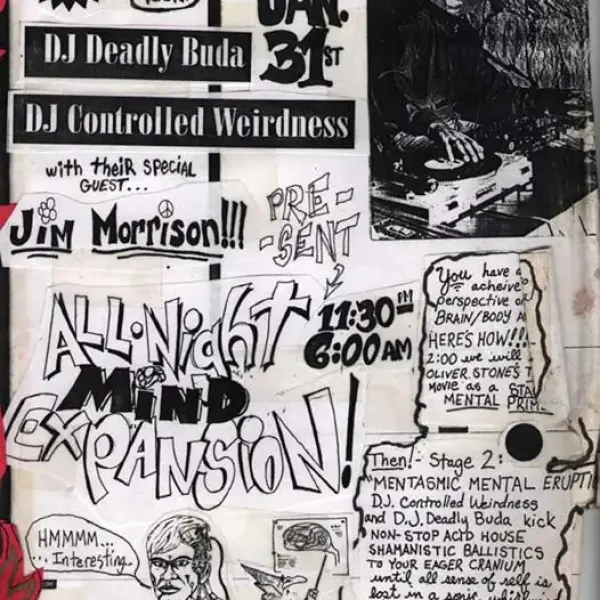 JAN.
31ST
DJ Deadly Buda
DJ Controlled Weirdness
with theiR SPECiAL
GUEST...
JiM MorriSon!!!
PRE-
-SENT
ALL·Night
MiND
EXPANSiON!
11:30 PM
6:00 AM
You have a
acheive
perspective of
BRAIN/BODY A
HERE'S HOW!!!
2:00 we will
OLIVER STONE'S T
Movie as a STA
MENTAL PRIM
Then!- Stage 2:
"MENTASMIC MENTAL ERUPTI
D.J. Controlled Weirdness
and D.J. Deadly Buda kick
NON-STOP ACID HOUSE
SHAMANISTIC BALLISTICS
TO YOUR EAGER CRANIUM
until all sense of self is
lost in a sonic whirlwind
HMMMM...
...Interesting..